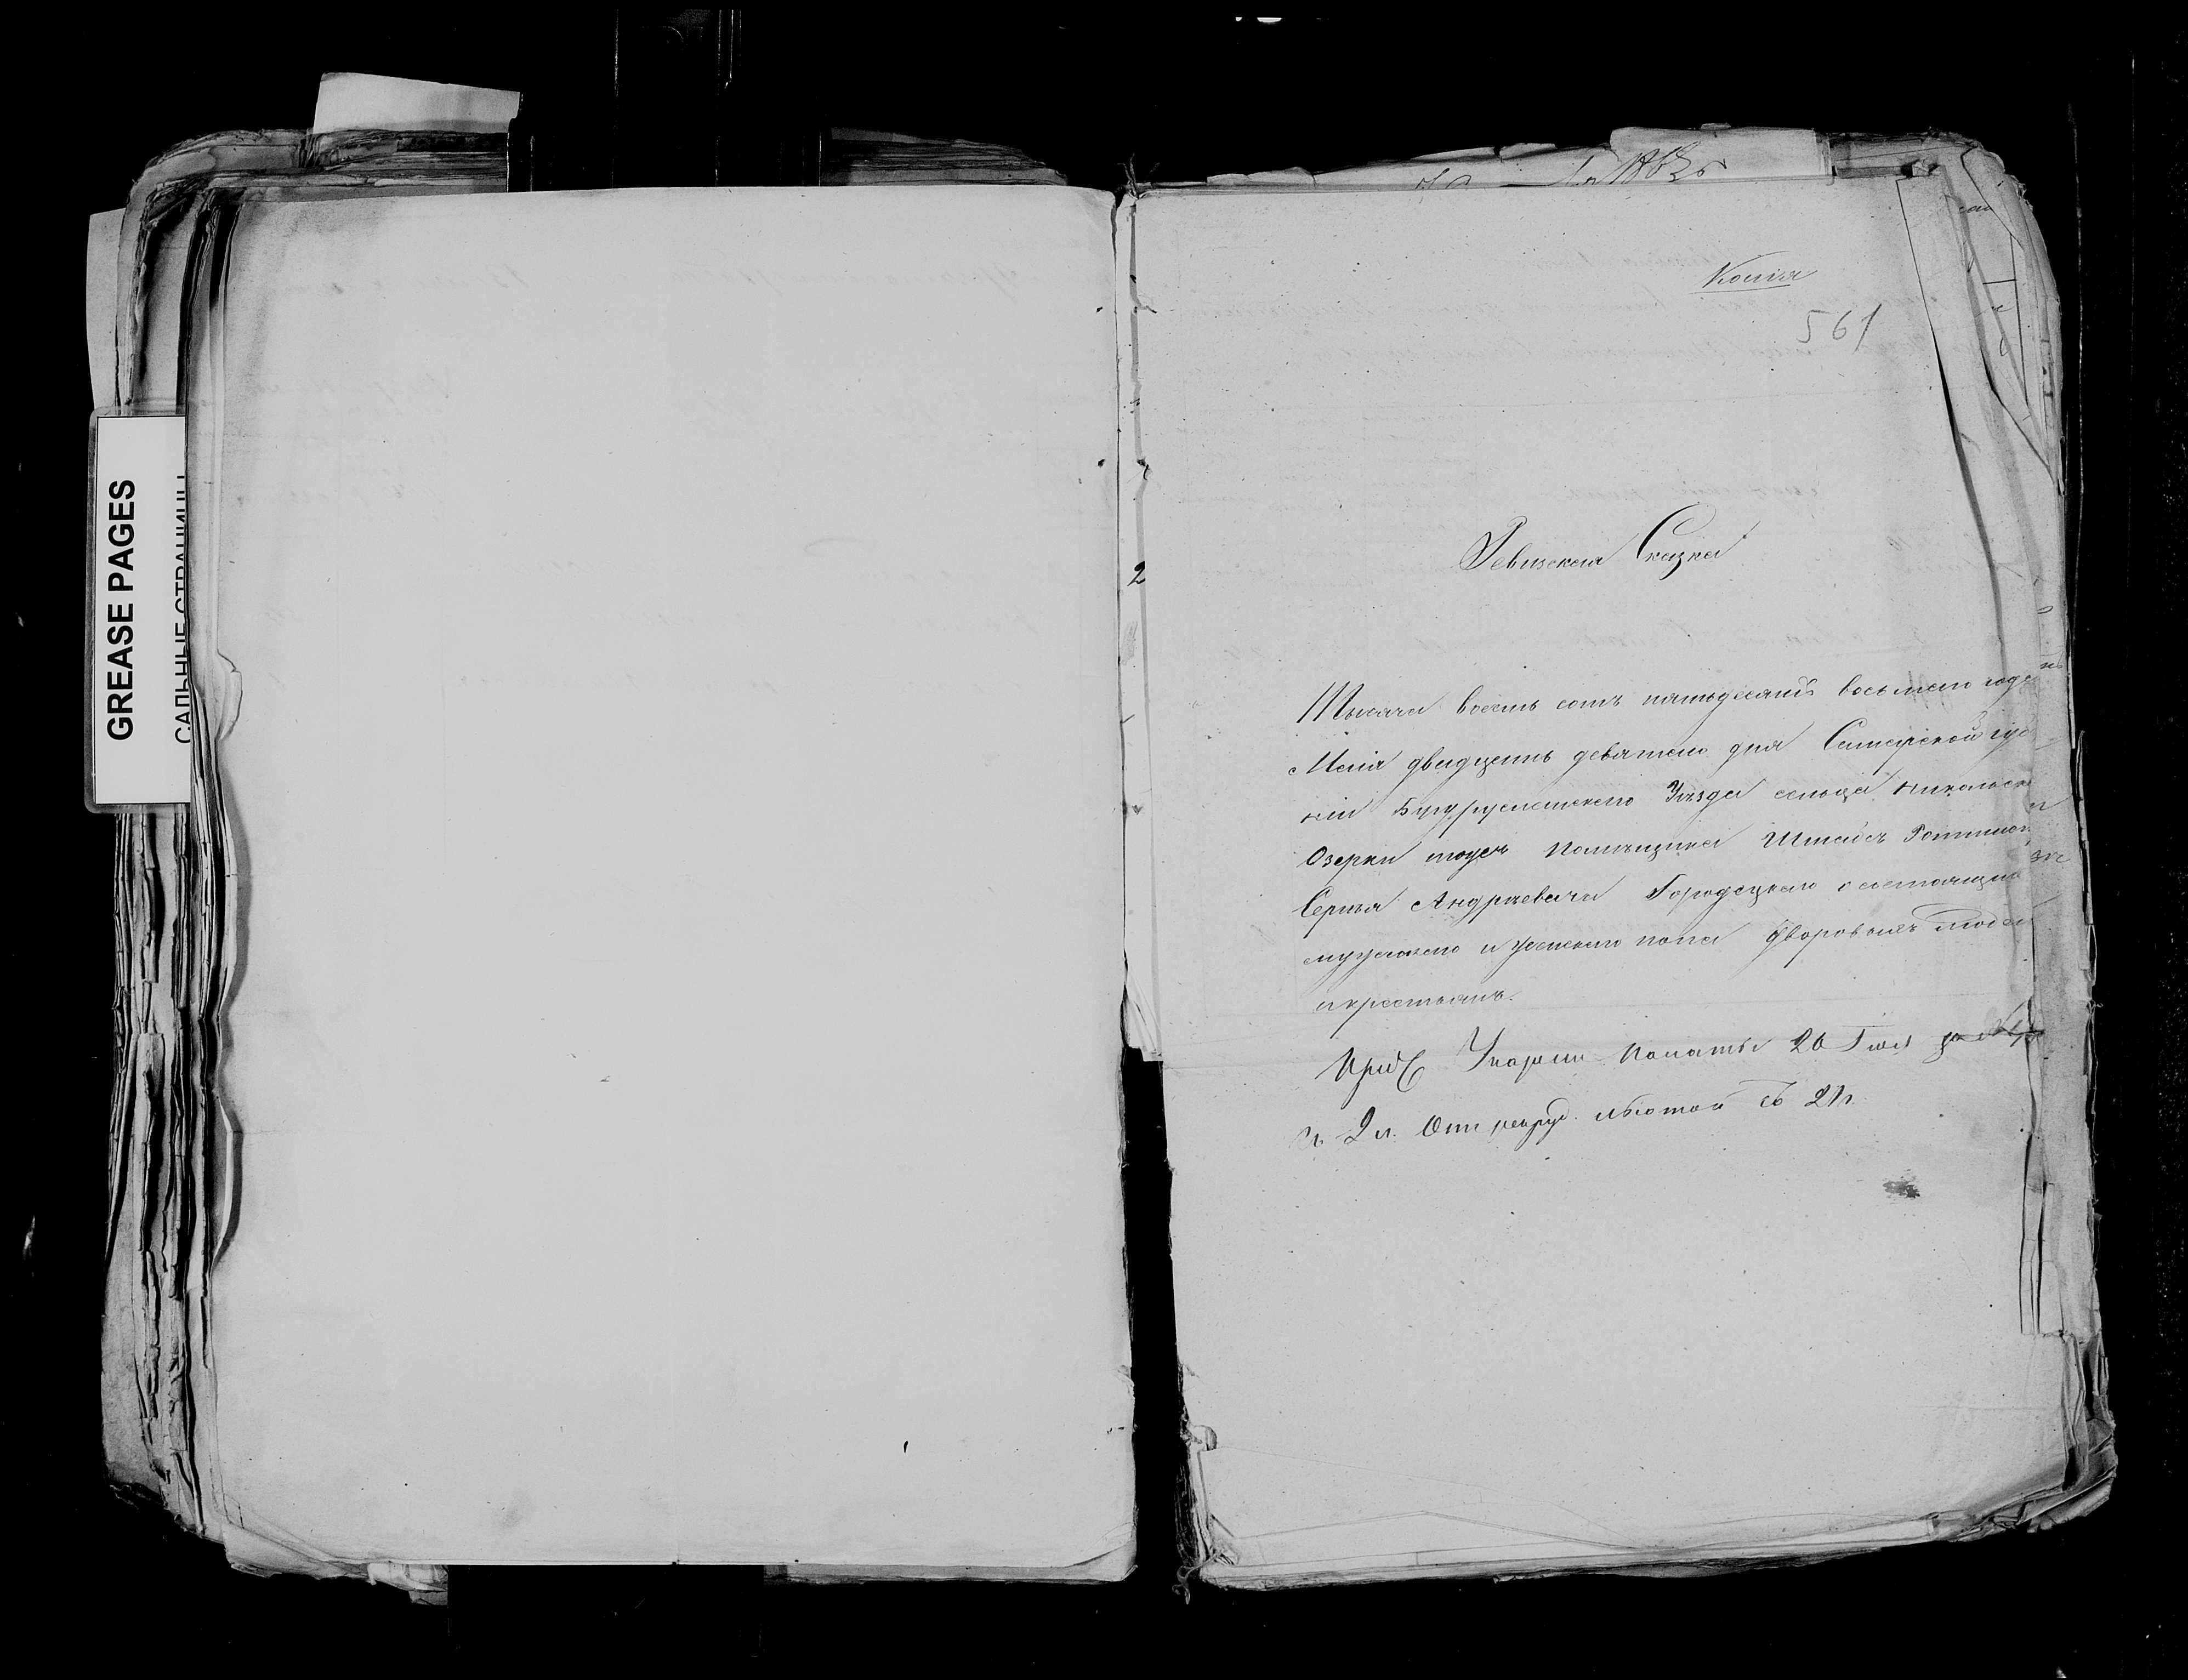 GREASE PAGES
САЛЬНЫЕ СТРАНИЦЫ
Копія
561
Ревизская Сказка
2
Тысяча восемь сотъ пятьдесятъ восьмаго года
Маія двадцать девятаго дня Самарской губ
ніи Бугурусланскаго Уѣзда сельца Никольска
Озерки тожъ Помѣщика Штабсъ Ротмис
Сергѣя Андрѣевича Городецкаго о состоящихъ
мужескаго и женскаго пола дворовыхъ людей
и крестьянъ.
Палаты 20
2 л. Отт 21